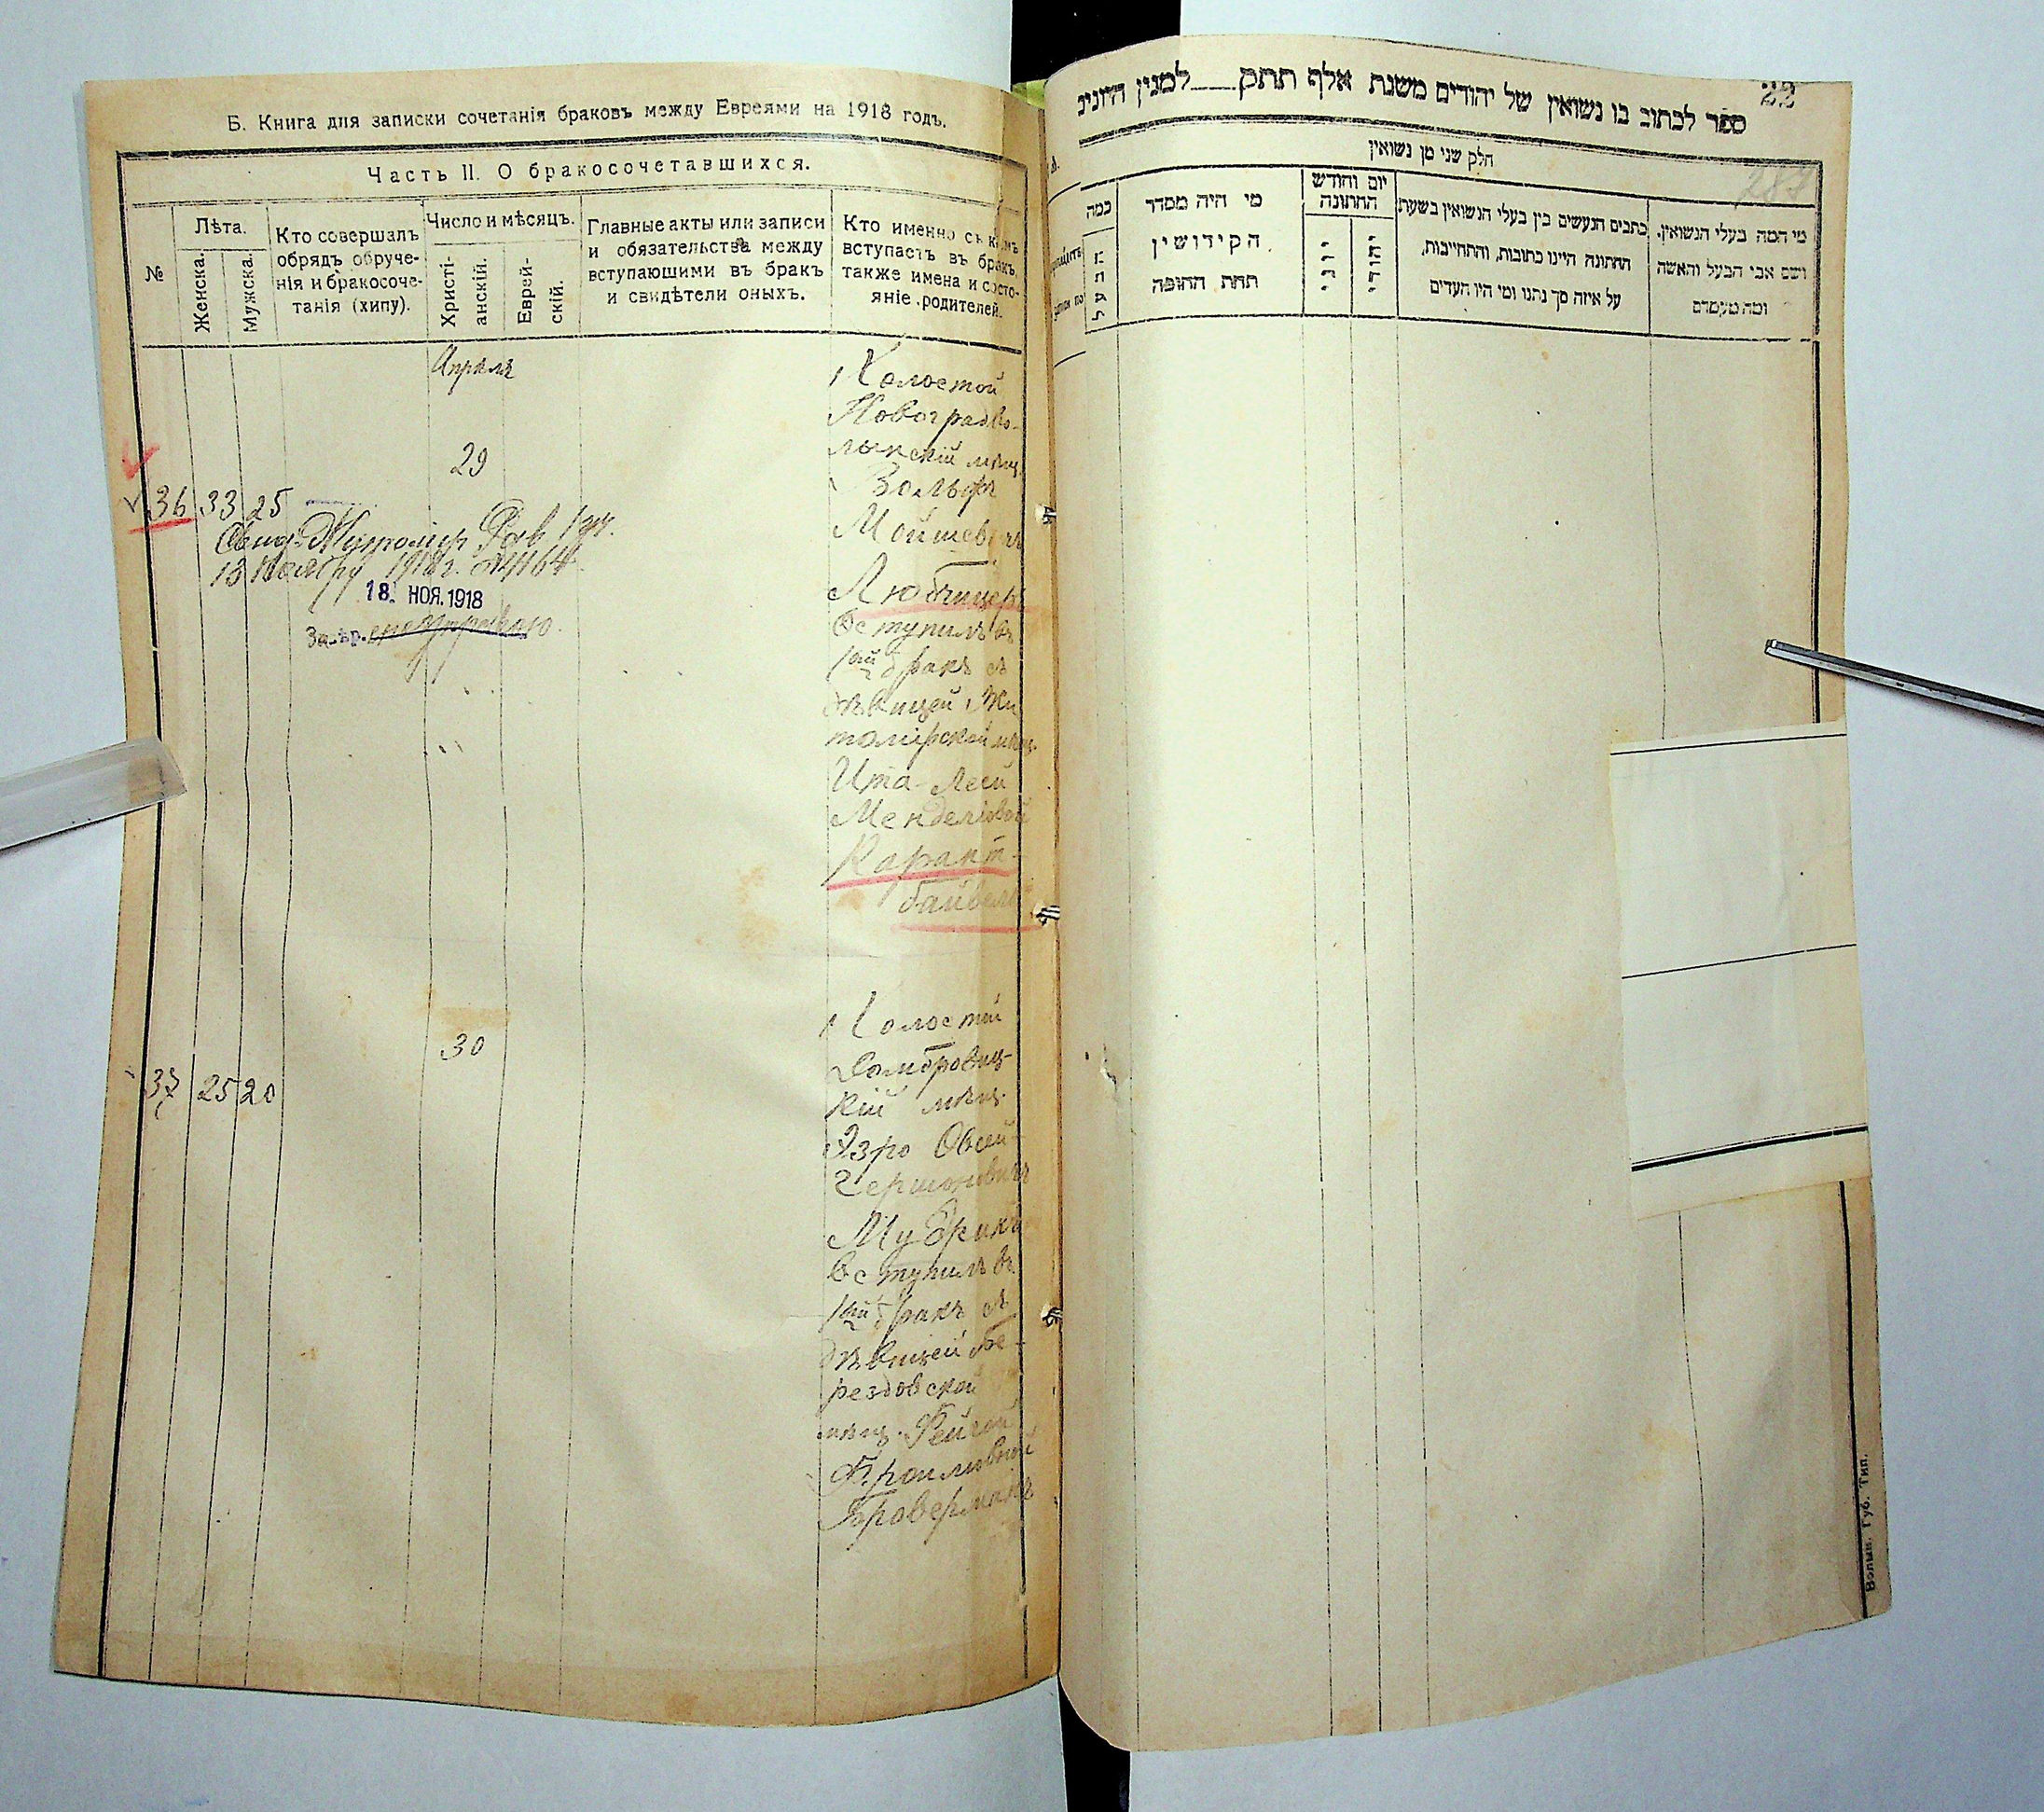 Б. Книга для записки сочетанія браковъ между Евреями на 1918 годъ.
Часть II. О бракосочетавшихся.
№
Лѣта.
Женска.
Мужска.
Кто совершалъ
обрядъ обруче-
нія и бракосоче-
танія (хипу).
Число и мѣсяцъ.
Христі-
анскій.
Еврей-
скій.
Главные акты или записи
и обязательства между
вступающими въ бракъ
и свидѣтели оныхъ.
Кто именно съ кѣмъ
вступаетъ въ бракъ,
также имена и состо-
яніе родителей.
Апрѣля
29
36 33 25
13 Ноября 1918 г. №1164
18. НОЯ. 1918
Холостой
Новоградво-
лынскій мѣщ.
Вольфъ
Мошков
Любчицеръ
вступилъ въ
1ый бракъ съ
дѣвицей Жи
томірской мѣщ.
Ита-Леей
Менделевой
Карант-
байвель
30
37 25 20
Холостой
Домбровиц-
кій мѣщ.
Эзро Овсей
Гершоновичъ
Мудрикъ
вступилъ въ
1ый бракъ съ
дѣвицей Бе-
рездовской
мѣщ. Фейгой
Фроимовной
Браверманъ
22
287
ספר לכתוב בו נשואין של יהודים משנת אלף תתק___למנין היוניט
חלק שני מן נשואין
כמה
מי היה מסדר
הקידושין
תחת החופה
יום וחודש
החתונה
יוני
יהודי
כתבים הנעשים בין בעלי הנשואין בשעת
החתונה היינו כתובות, והתחייבות,
על איזה סך נתנו ומי היו העדים
מי המה בעלי הנשואין,
ושם אבי הבעל והאשה
ומה מעמדם
Волын. Губ. Тип.